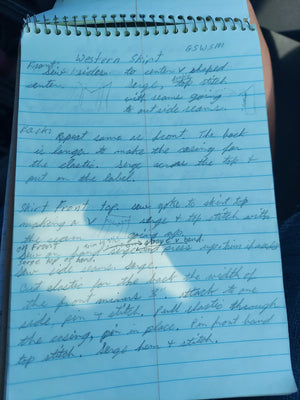 Western Skirt GSWSM
Front:
Sew sides to center v shaped
center. Serge, top stitch
with seams going
to out side seams.
Back:
Repeat same as front. The back
is longer to make the casing for
the elastic. Serge across the top &
put on the label.
Skirt Front top sew yoke to skirt top
making a V serge & top stitch with
the seam
Sew side seams. Serge.
Cut elastic for the back the width of
the front minus attach to one
side, pin & stitch. Pull elastic through
the casing, pin in place. Pin front band
top stitch. Serge hem & stitch.